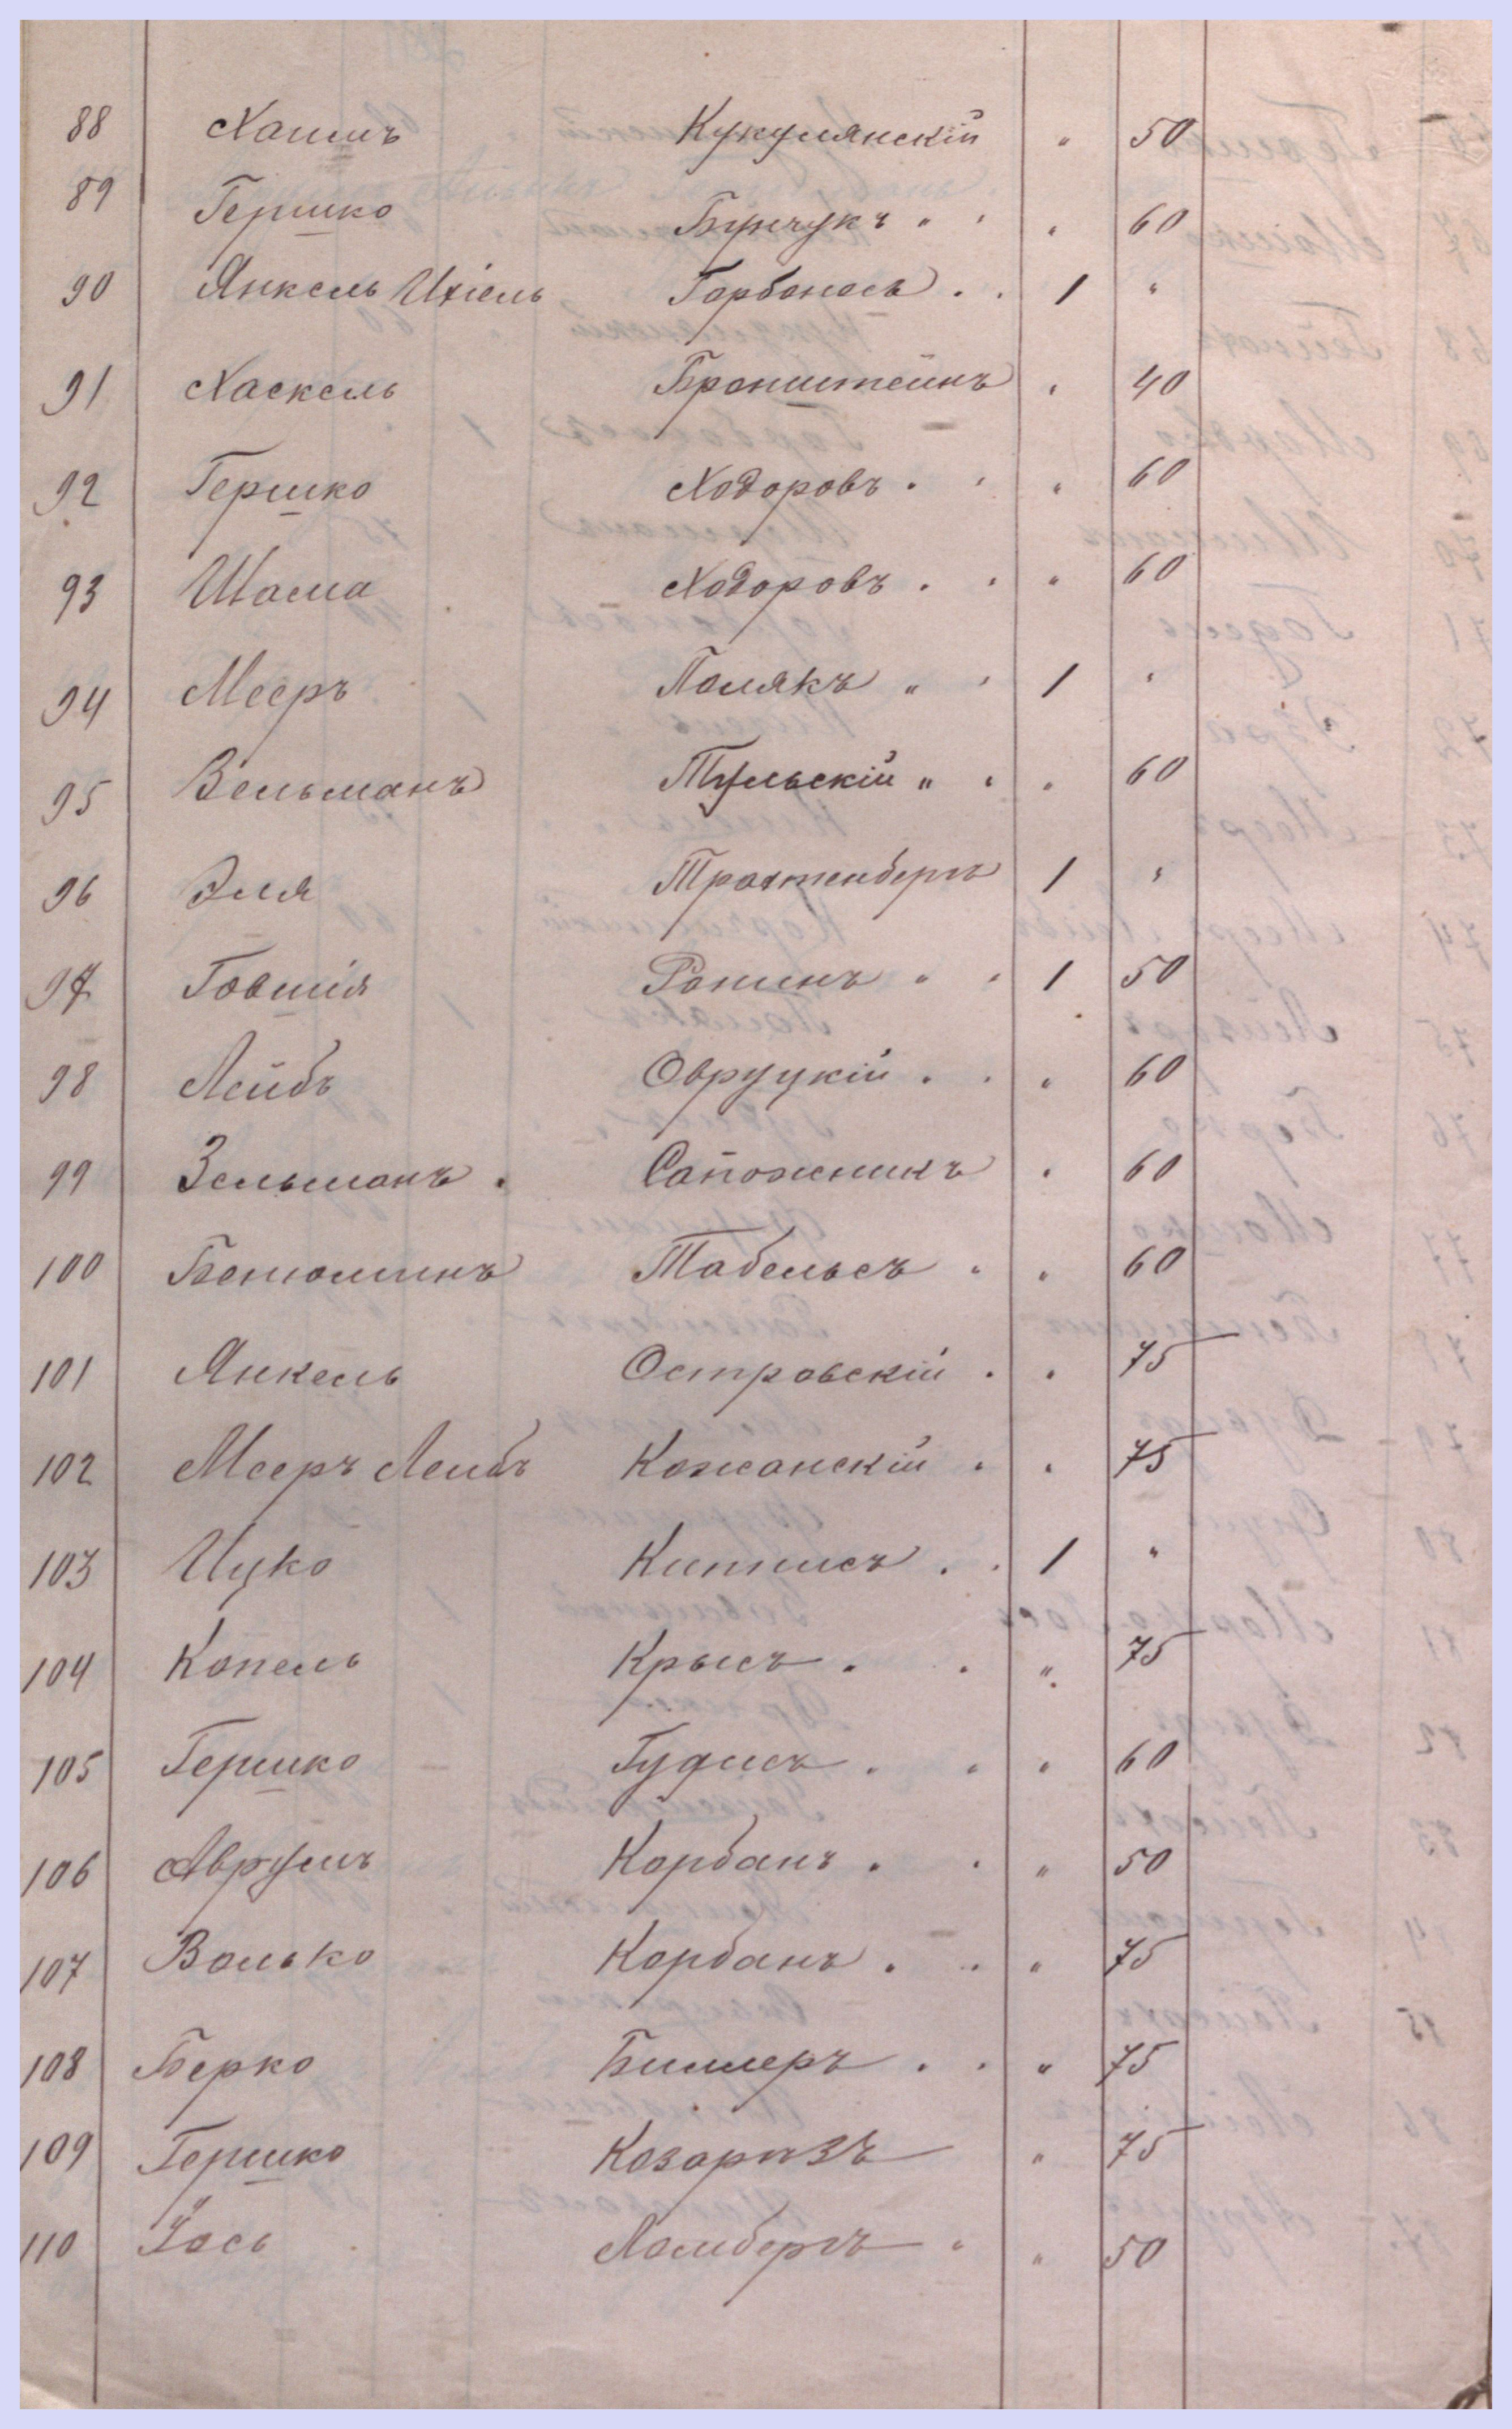 88 Хаимъ Кукулянскій " 50
89 Гершко Бунчукъ " " " 60
90 Янкель Ихіель Горбонось . . 1 "
91 Хаскель Бронштейнъ " 40
92 Гершко Ходоровъ . " " 60
93 Шама Ходоровъ . " " 60
94 Мееръ Полякъ " " 1 "
95 Вельманъ Тульскій " " " 60
96 Эля Трахтенбергъ 1 "
97 Говшія Ронинъ " " 1 50
98 Лейбъ Овруцкій . . " 60
99 Зельманъ . Сапожникъ " 60
100 Бенюминъ Табельсъ " " 60
101 Янкель Островскій . . 75
102 Мееръ Лейбъ Кожанскій . . 75
103 Ицко Китисъ . . 1 "
104 Копель Крысъ . . " 75
105 Гершко Гудисъ . " " 60
106 Аврумъ Корбанъ . . " 50
107 Волько Корбанъ . . " 75
108 Берко Биллеръ . . " 75
109 Гершко Козаризъ " 75
110 Іось Ломбергъ " " 50